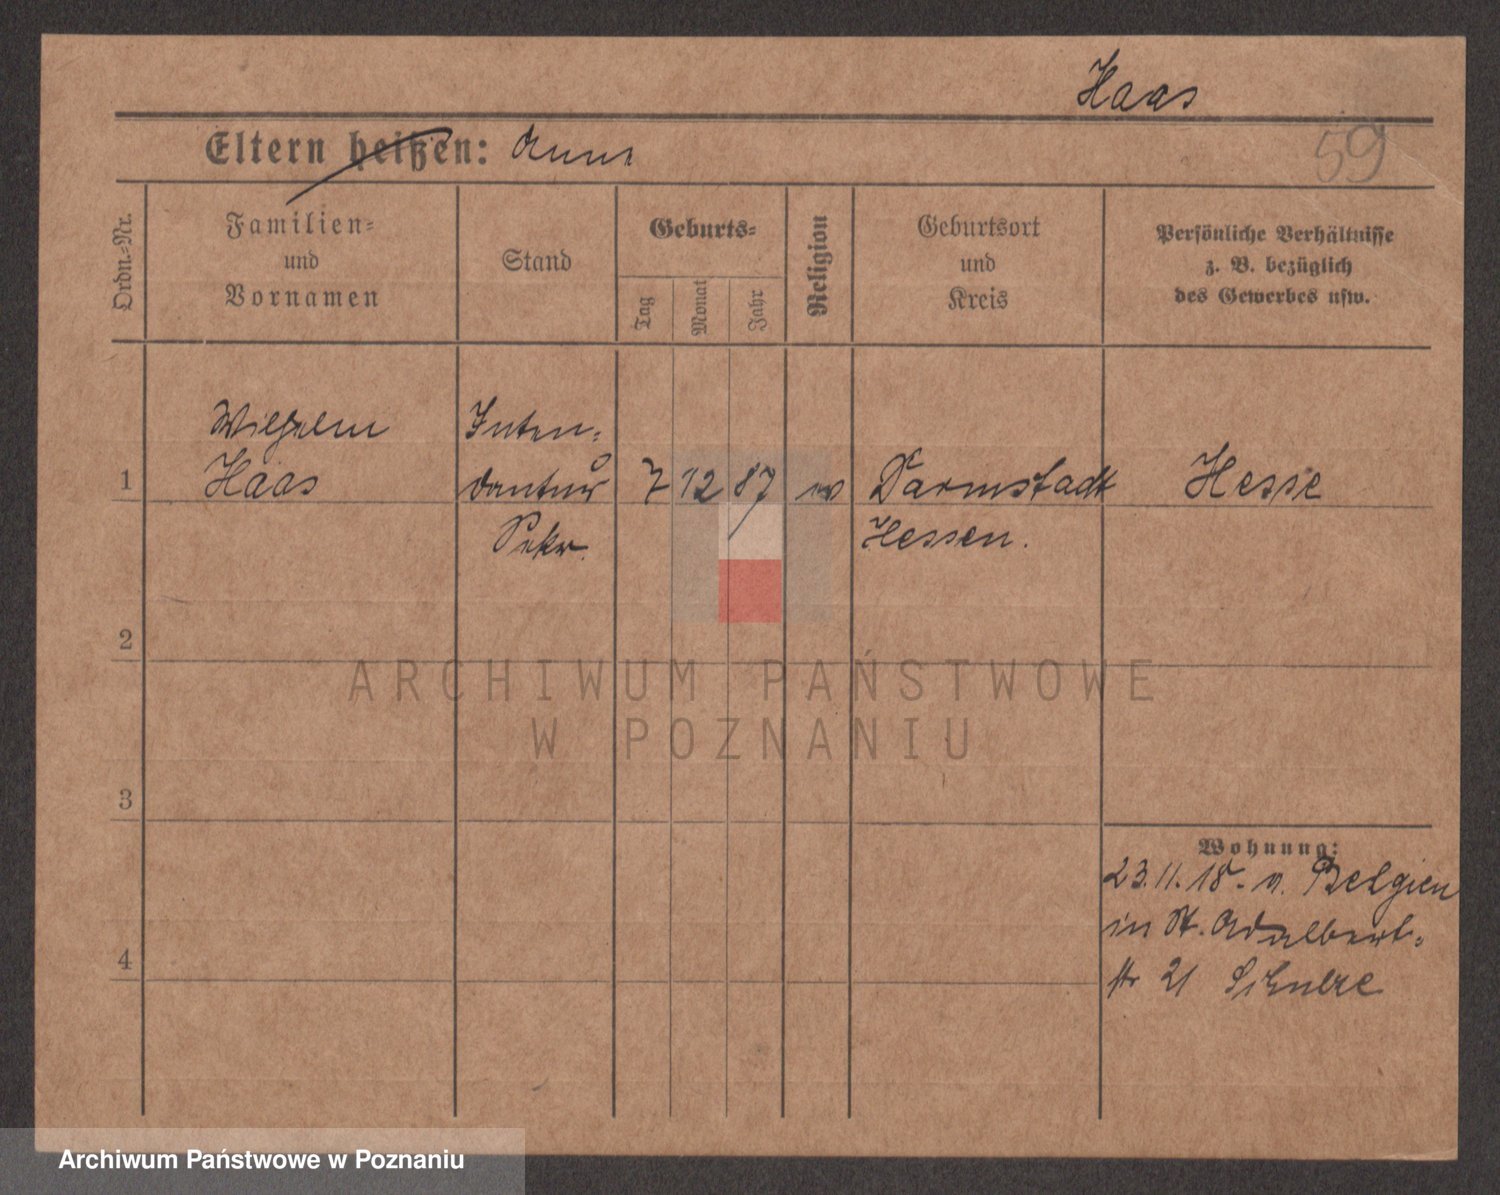 Haas
59
Eltern heißen:
Ordn.-Nr.
Familien-
und
Vornamen
Stand
Geburts-
Tag
Monat
Jahr
Religion
Geburtsort
und
Kreis
Persönliche Verhältnisse
z. B. bezüglich
des Gewerbes usw.
1
Wilhelm
Haas
Inten-
dantur
Sekr.
7 12 87
ev
Darmstadt
Hessen.
Hesse
2
3
4
Wohnung:
23.11.18. v. Belgien
in St. Adalbert-
str 21 Schulze
ARCHIWUM PAŃSTWOWE
W POZNANIU
Archiwum Państwowe w Poznaniu